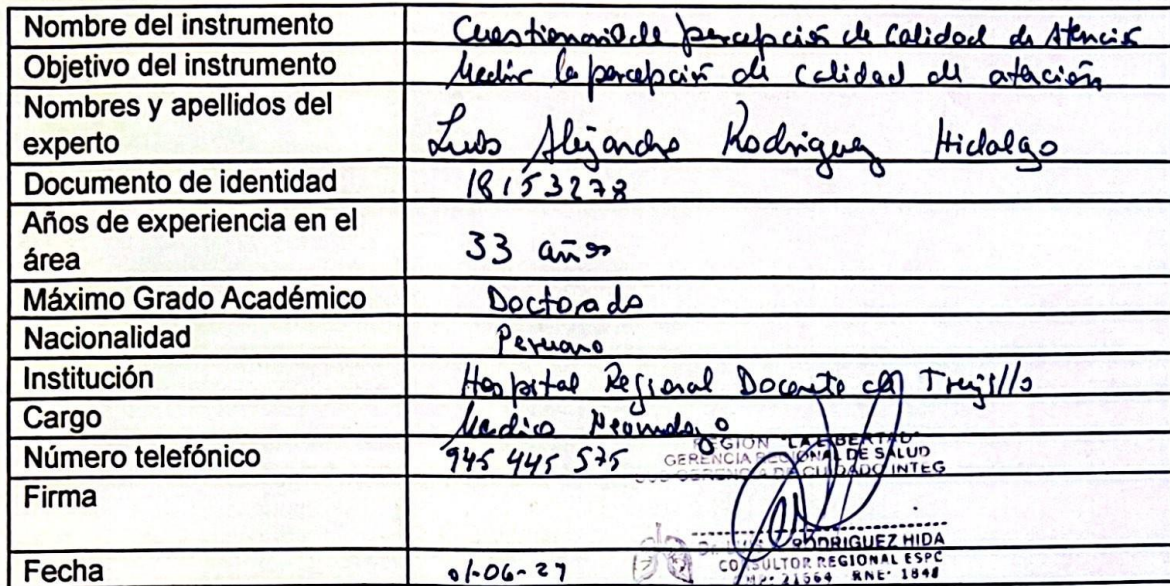 Nombre del instrumento Cuestionario de percepción de Calidad de Atención
Objetivo del instrumento Medir la percepción de calidad de atención
Nombres y apellidos del
experto Luis Alejandro Rodriguez Hidalgo
Documento de identidad 18153278
Años de experiencia en el
área 33 años
Máximo Grado Académico Doctorado
Nacionalidad Peruano
Institución Hospital Regional Docente de Trujillo
Cargo Medico Neumologo
Número telefónico 945 445 575
REGION "LA LIBERTAD"
GERENCIA REGIONAL DE SALUD
GERENCIA DE CUIDADO INTEG
Firma
RODRIGUEZ HIDA
CONSULTOR REGIONAL ESPC
21664 RNE: 1848
Fecha 01-06-